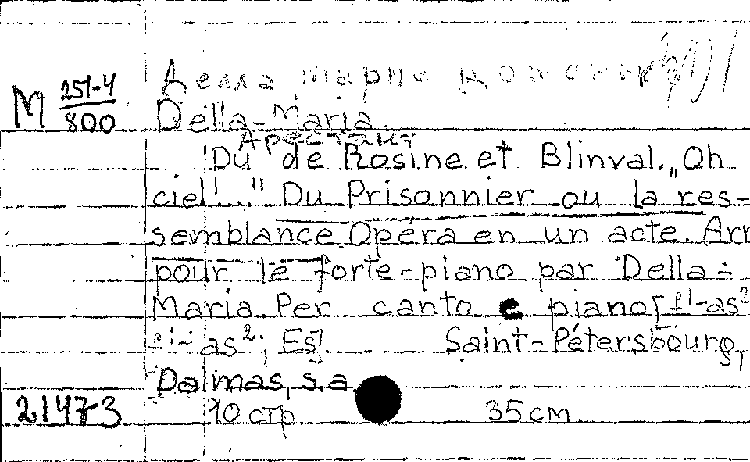 Делла Мария
M 251-4/800 Della-Maria.
Арестант
Du de Rosine et Blinval. „Oh
ciel!..." Du Prisonnier ou la res-
semblance. Opéra en un acte. Arr
pour le forte-piano par Della-
Maria. Per canto e piano
as²; Es]. Saint-Pétersbourg,
Dalmas, s.a.
21473 10 стр 35 см